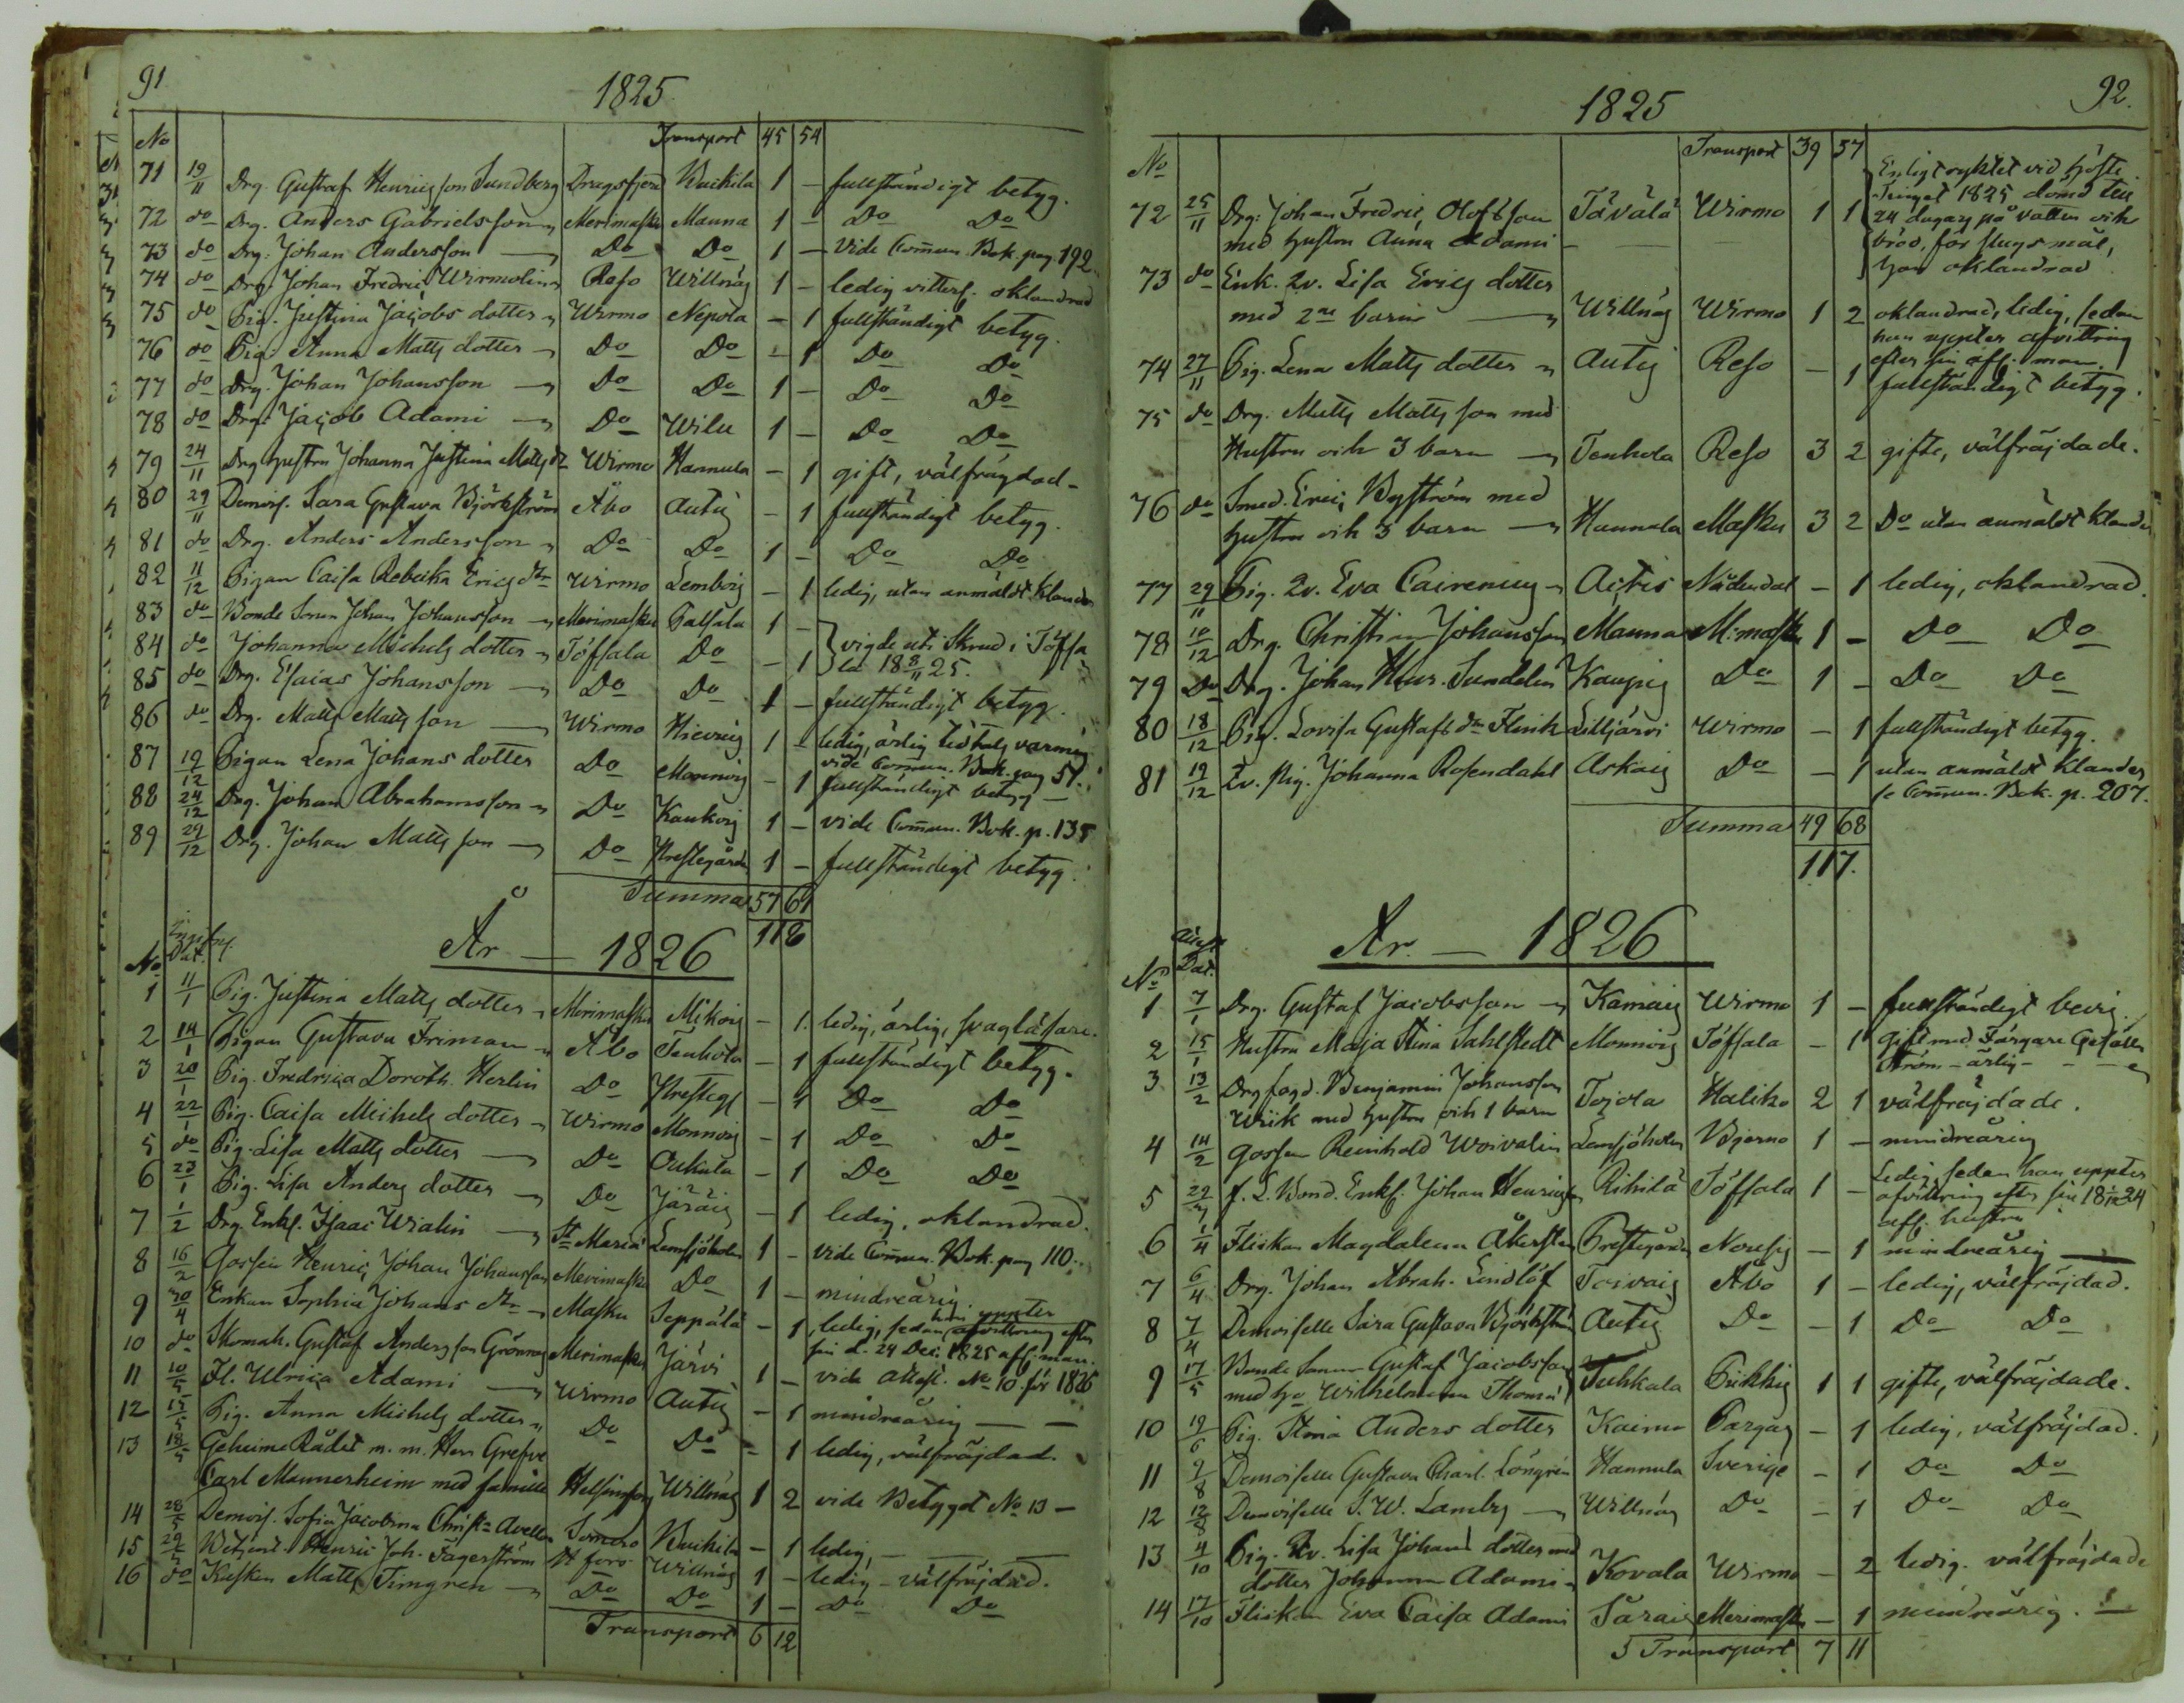 91
1825
No Transport 45 54
71 19/11 Drg. Gustaf Henricsson Sundberg Dragsfjerd Kuikila 1 - fullständigt betyg.
72 do Drg. Anders Gabrielsson Merimasku Manna 1 - Do Do
73 do Drg. Johan Andersson Do Do 1 - Vide Com̃un. Bok. pag. 192.
74 do Drg. Johan Fredric Wirmolin Reso Willnäs 1 - ledig oklandrad
75 do Pig. Justina Jacobs dotter Wirmo Nepola - 1 fullständigt betyg.
76 do Pig. Anna Matts dotter Do Do - 1 Do Do
77 do Drg. Johan Johansson Do Do 1 - Do Do
78 do Drg. Jacob Adami Do Wilu 1 - Do Do
79 24/11 Drg hustru Johanna Justina Matts dr Wirmo Hannula - 1 gift, välfrägdad
80 29/11 Demois. Sara Gustava Björkström Åbo Autis - 1 fullständigt betyg.
81 do Drg. Anders Andersson Do Do 1 - Do Do
82 11/12 Pigan Caisa Rebecka Erics dr Wirmo Lembois - 1 ledig, utan anmäldt klander
83 do Bonde Sonen Johan Johansson Merimasku Palsala 1 -
84 do Johanna Michels dotter Töfsala Do - 1 vigde uti Skrud i Töfsala 18 8/11 25.
85 do Drg. Esaias Johansson Do Do 1 - fullständigt betyg.
86 do Drg. Matts Mattsson Wirmo Hievais 1 - ledig, ärlig
vide Com̃un. Bok. pag 51.
87 19/12 Pigan Lena Johans dotter Do Monnois - 1 fullständigt betyg
88 24/12 Drg. Johan Abrahamsson Do Kaukois 1 - vide Com̃un. Bok. p. 135
89 29/12 Drg. Johan Mattsson Do Prestegården 1 - fullständigt betyg.
Summa 57 61
118
År - 1826
No Dat.
1 11/1 Pig. Justina Matts dotter Merimasku Mikois - 1. ledig, ärlig, svag läsare.
2 14/1 Pigan Gustava Friman Åbo Tenhola - 1 fullständigt betyg.
3 20/1 Pig. Fredrica Doroth. Herlin Do Prestegl - 1 Do Do
4 22/1 Pig. Caisa Michels dotter Wirmo Monnois - 1 Do Do
5 do Pig. Lisa Matts dotter Do Oukula - 1 Do Do
6 23/1 Pig. Lisa Anders dotter Do Järäis - 1 ledig, oklandrad.
7 1/2 Drg. Enkl. Isaac Wialin St Mariæ Lemsjöholm 1 - vide Com̃un. Bok. pag 110.
8 16/2 Gossen Henric Johan Johansson Merimasku Do 1 - mindreårig.
9 30/4 Enkan Sophia Johans dr Masku Seppälä - 1 ledig, sedan hon uppter afvittring efter
sin d. 24 Dec. 1825 afl. man.
10 do Skomak. Gustaf Andersson Grönroos Merimasku Järvi 1 - vide attest. No 10. för 1826
11 10/5 Fl. Ulrica Adami Wirmo Autis - 1 mindreårig
12 15/5 Pig. Anna Michels dotter Do Do - 1 ledig, välfräjdad.
13 18/5 Geheime Rådet m. m. Herr Grefve
Carl Mannerheim med famille Helsingfors Willnäs 1 2 vide Betyget No 13
14 28/5 Demois. Sofia Jacobina Christ. Avellan Somero Kuikila - 1 ledig,
15 29/5 Betjent. Henric Joh. Fagerström Willnäs 1 - ledig - välfräjdad.
16 do Kusken Matts Timgren Do Do 1 - Do Do
Transport 6 12
92.
1825
No Transport 39 57
72 25/11 Drg. Johan Fredric Olofsson Tävälä Wirmo 1 1 Enligt ryktet vid höste
med hustru Anna Adami
Tinget 1825 dömd till
24 dagars på vatten och
bröd, för slagsmål,
hon oklandrad
73 do Enk. Lisa Erics dotter
med 2ne barn Willnäs Wirmo 1 2 oklandrad, ledig, sedan
hon uppter afvittring
efter sin afl. man
74 27/11 Pig. Lena Matts dotter Autis Reso - 1 fullständigt betyg.
75 do Drg. Matts Mattsson med
Hustru och 3 barn Tenhola Reso 3 2 gifte, välfräjdade.
76 do Smed. Eric Byström med
hustru och 3 barn Hannula Masku 3 2 Do utan anmäldt klander
77 29/11 Pig. Eva Cairenius Actis Nådendal - 1 ledig, oklandrad.
78 10/12 Drg. Christian Johansson Manna M:masku 1 - Do Do
79 Do Drg. Johan Henr. Sundelin Kaupis Do 1 - Do Do
80 18/12 Pig. Lovisa Gustafs dr Flink Lilljärvi Wirmo - 1 fullständigt betyg.
81 19/12 Johanna Rosendahl Askais Do - 1 utan anmäldt klander
se Com̃un. Bok. p. 207.
Summa 49 68
117.
Ar. - 1826
No Dat.
1 7/1 Drg. Gustaf Jacobsson Kamais Wirmo 1 - fullständigt bevis.
2 15/1 Hustru Maja Stina Sahlstedt Monnois Töfsala - 1 gift med Färgare Gesällen
Ström - ärlig
3 13/2 Drg fogd. Benjamin Johansson
Wiik med hustru och 1 barn Tojola Haliko 2 1 välfräjdade.
4 14/2 Gossen Reinhold Woivalin Lemsjöholm Bjerno 1 - mindreårig
5 f. L. Bond. Enkl. Johan Henricsson Rihilä Töfsala 1 - Ledig, sedan han uppter
afvittring efter sin
afl. hustru
6 1/4 Flickan Magdalena Åkersten Prestegården Nousis - 1 mindreårig
7 6/4 Drg. Johan Abrah. Lindlöf Toivais Åbo 1 - ledig, välfräjdad.
8 7/4 Demoiselle Sara Gustava Björkström Autis Do - 1 Do Do
9 17/5 Bonde Sonen Gustaf Jacobsson
med hu Wilhelmina Thomæ Tuhkala Pikkis 1 1 gifte, välfräjdade.
10 19/6 Pig. Stina Anders dotter Kaimo Pargas - 1 ledig, välfräjdad.
11 9/8 Demoiselle Gustava Charl. Löngren Hannula Sverige - 1 Do Do
12 12/8 Demoiselle S. W. Lamby Willnäs Do - 1 Do Do
13 4/10 Pig. Lisa Johans dotter med
dotter Johanna Adami Kovala Wirmo - 2 ledig. välfräjdade
14 17/10 Flickan Eva Caisa Adami Säräis Merimasku - 1 mindreårig.
Transport 7 11